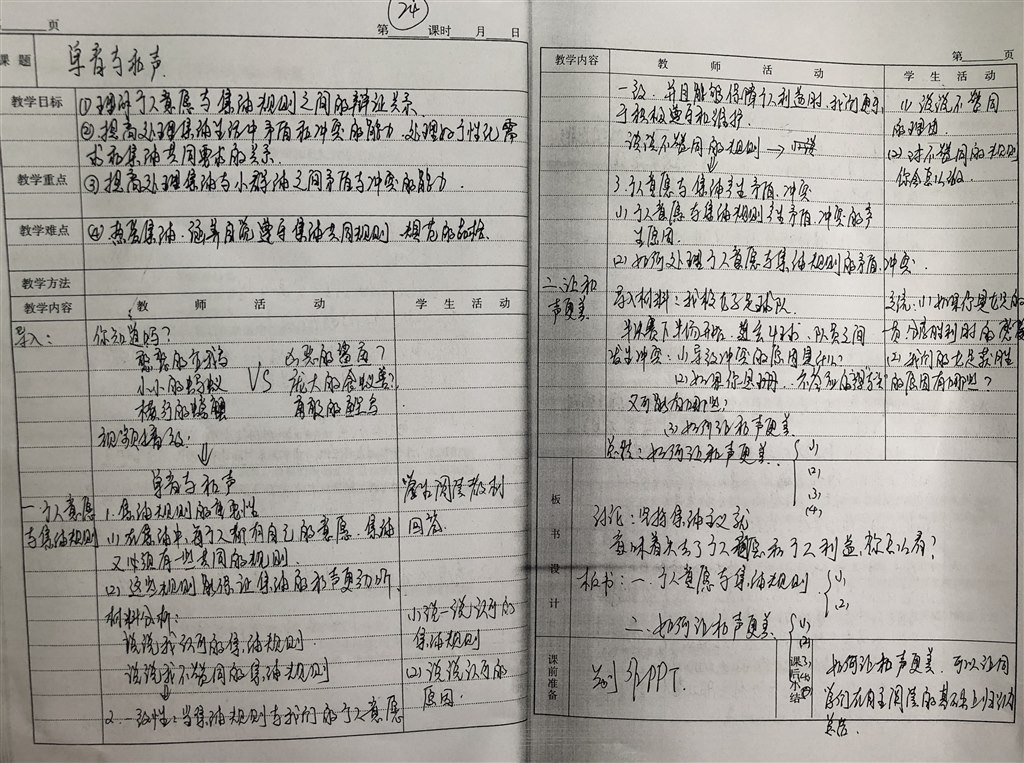 页
24
第 课时 月 日
课题 单音与和声
教学目标 ①理解个人意愿与集体规则之间的辩证关系
②提高处理集体生活中矛盾和冲突的能力 处理好个性化需
求和集体共同要求的关系.
教学重点 ③提高处理集体与小群体之间矛盾与冲突的能力.
教学难点 ④热爱集体.涵养自觉遵守集体共同规则 规范的品格.
教学方法
教学内容 教 师 活 动 学 生 活 动
导入: 你知道吗?
憨憨的
小小的蚂蚁 VS 庞大的食蚁兽?
横行的螃蟹
视频播放:
⇓
单音与和声
一.个人意愿 1.集体规则的重要性
与集体规则 (1)在集体中,每个人都有自己的意愿.集体 回答.
又必须有一些共同的规则.
(2)这些规则能保证集体的和声更动听.
材料分析: (1)说一说认可的
说说我认可的集体规则 集体规则
说说我不赞同的集体规则 (2)说说认可的
原因.
2.一致性:当集体规则与我们的个人意愿
第 页
教学内容 教 师 活 动 学 生 活 动
一致.并且能够保障个人利益时,我们更 (1)说说不赞同
于积极遵守和维护. 的理由
说说不赞同的规则 → (2)对不赞同的规则
⇓ 你会怎么做
3.个人意愿与集体产生矛盾.冲突
(1)个人意愿与集体规则产生矛盾.冲突的产
生原因.
(2)如何处理个人意愿与集体规则的矛盾.冲突.
二.让和 导入材料:我校 足球队 交流:(1)如果你是 的
声更美 半决赛下半场开始. 队员之间 员.分享胜利时的
发生冲突:(1)导致冲突的原因是什么? (2)我们的 获胜
(2)如果你是 的原因有哪些?
又可能有哪些?
(3)如何让和声更美
总结:如何让和声更美 (1)
(2)
(3)
(4)
板书设计
讨论:坚持集体主义就
意味着失去了个人意愿和个人利益,你怎么看?
板书:一.个人意愿与集体规则 (1)
(2)
二.如何让和声更美 (1)
(2)
(3)
(4)
课前准备 制作PPT.
课后小结 如何让和声更美.可以让同
学们在自主阅读的基础上归纳
总结.